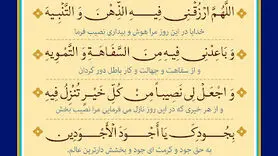 اللَّهُمَّ ارْزُقْنِي فِيهِ الذِّهْنَ وَ التَّنْبِيهَ
خدایا در این روز مرا هوش و بیداری نصیب فرما
وَ بَاعِدْنِي فِيهِ مِنَ السَّفَاهَةِ وَ التَّمْوِيهِ
و از سفاهت و جهالت و کار باطل دور گردان
وَ اجْعَلْ لِي نَصِيبًا مِنْ كُلِّ خَيْرٍ تُنْزِلُ فِيهِ
و از هر خیری که در این روز نازل می فرمایی مرا نصیب بخش
بِجُودِكَ يَا أَجْوَدَ الْأَجْوَدِينَ
به حق جود و کرمت ای جود و بخشش دارترین عالم.